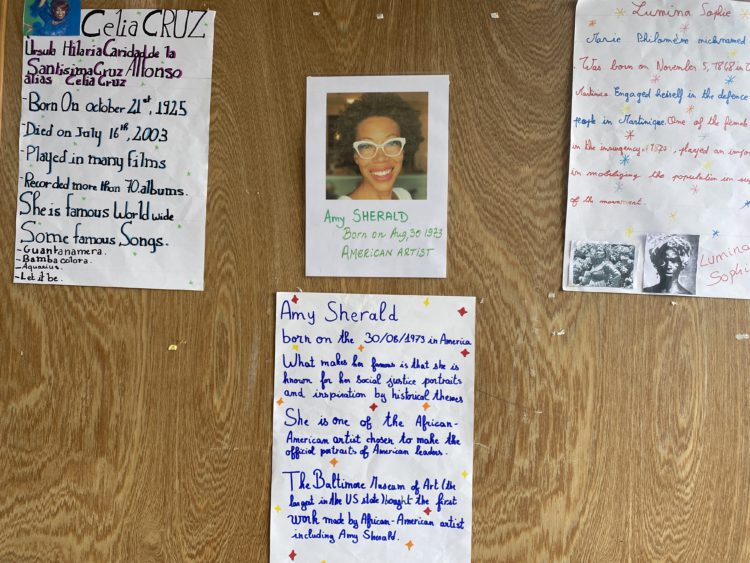 Celia CRUZ
Ursula Hilaria Caridad de la
Santisima Cruz Alfonso
alias Celia Cruz
-Born On october 21st, 1925
-Died on July 16th, 2003
-Played in many Films
-Recorded more than 70 albums.
She is famous World wide
Some famous Songs.
-Guantanamera.
-Bamba colora.
-Aquarius.
-Let it be.
Amy SHERALD
Born on Aug, 30 1973
AMERICAN ARTIST
Amy Sherald
born on the 30/08/1973 in America
What makes her famous is that she is
known for her social justice portraits
and inspiration by historical themes
She is one of the African-
American artist chosen to make the
official portraits of American leaders.
The Baltimore Museum of Art (the
largest in the US state) bought the first
work made by African-American artist
including Amy Sherald.
Lumina Sophie
Marie Philomène nicknamed
Was born on November 5, 1848 in
Engaged herself in the defence
people in Martinique. One of the
in the insurgency played an
in mobilizing the population in
of the movement.
Lumina